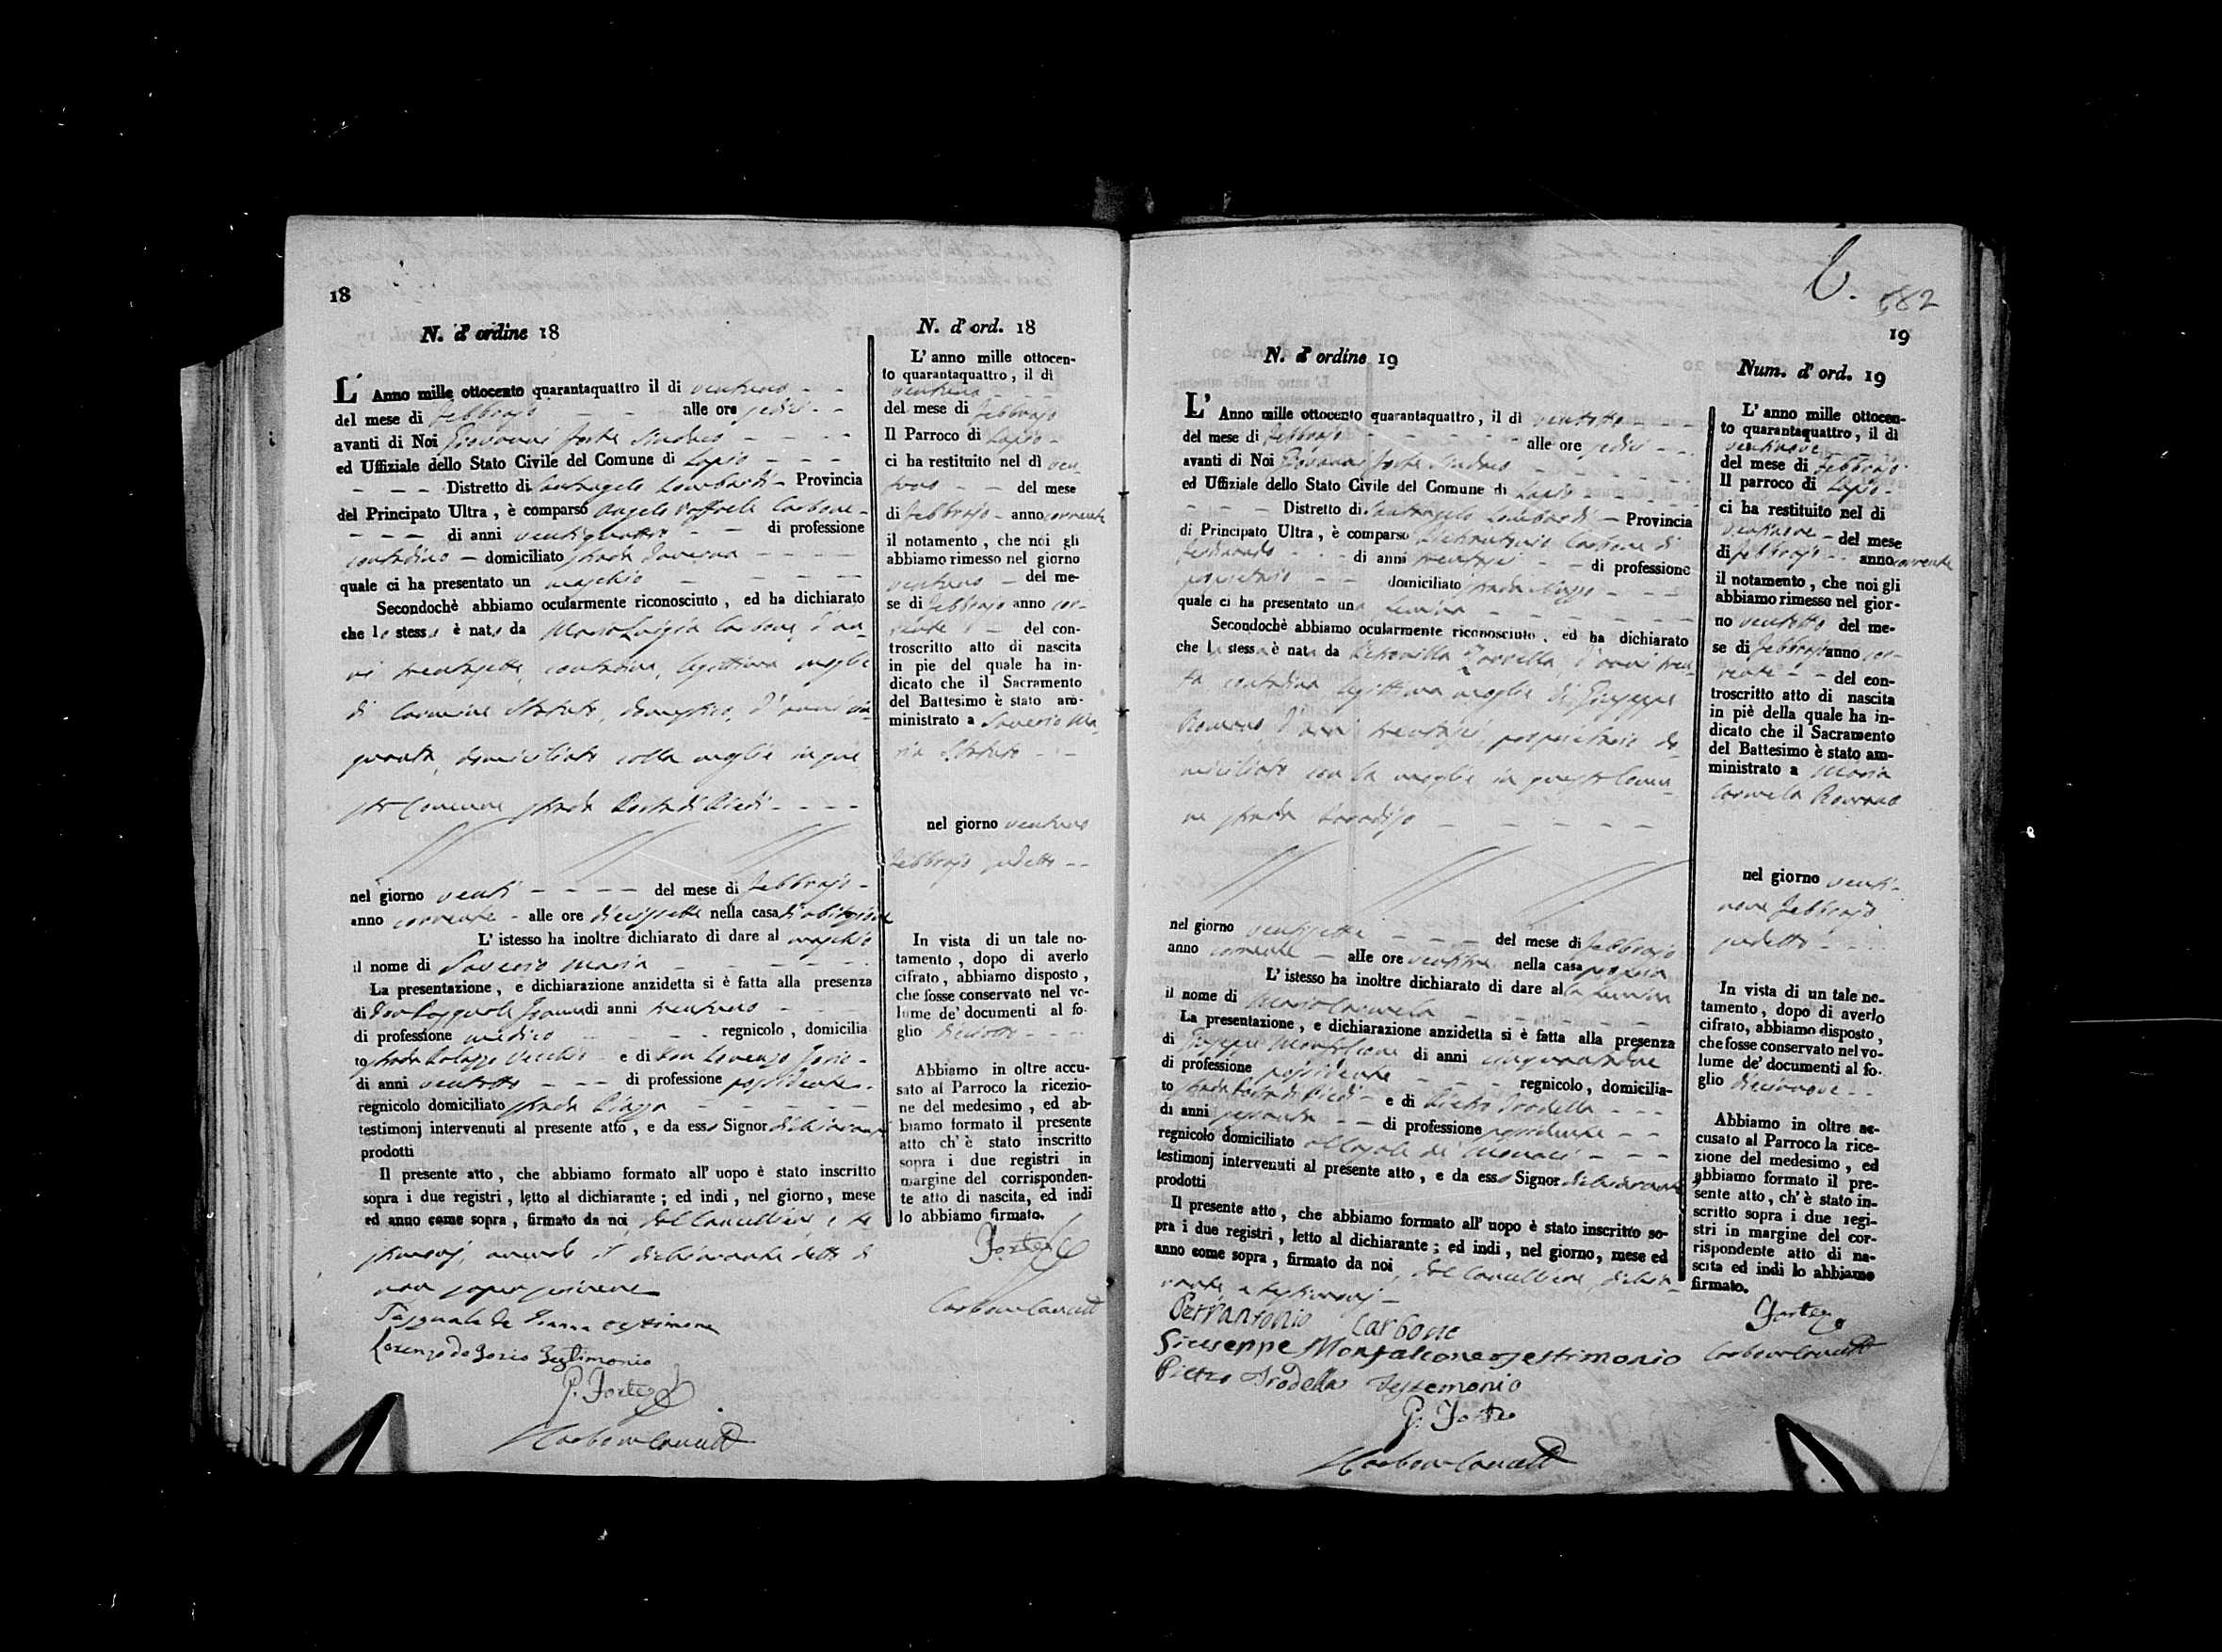 18
N. d' ordine 18
L' Anno mille ottocento quarantaquattro il di ventuno
del mese di Febbrajo alle ore sedici
avanti di Noi Giovanni Forte Sindaco
ed Uffiziale dello Stato Civile del Comune di Lapio
Distretto di Santangelo Lombardi Provincia
del Principato Ultra, è comparso Angelo Raffaele Carbone
di anni ventiquattro di professione
contadino domiciliato strada
quale ci ha presentato un maschio
Secondochè abbiamo ocularmente riconosciuto, ed ha dichiarato
che lo stesso è nato da Maria Luiggia Carbone, d'an
ni trentasette, contadina, legittima moglie
di Carmine Statuto, domestico, d'anni cin
quanta, domiciliato colla moglie in que
sto Comune strada Costa di Piedi
nel giorno venti del mese di Febbrajo
anno corrente alle ore diecissette nella casa di abitazione
L' istesso ha inoltre dichiarato di dare al maschio
il nome di Saverio Maria
La presentazione, e dichiarazione anzidetta si è fatta alla presenza
di Don Pasquale di anni trentuno
di professione medico regnicolo, domicilia
to strada Palazzo Vecchio e di Don Lorenzo
di anni ventotto di professione possidente
regnicolo domiciliato strada Piazza
testimonj intervenuti al presente atto, e da esso Signor dichiarante
prodotti
Il presente atto, che abbiamo formato all' uopo è stato inscritto
sopra i due registri, letto al dichiarante; ed indi, nel giorno, mese
ed anno come sopra, firmato da noi, dal Cancelliere, e te
stimonj, avendo il dichiarante detto di
non saper scrivere
Pasquale de testimone
Lorenzo testimonio
G. Forte
Carbone Cancell
N. d' ord. 18
L' anno mille ottocen-
to quarantaquattro, il dì
ventuno
del mese di Febbrajo
Il Parroco di Lapio
ci ha restituito nel dì ven
tuno del mese
di Febbrajo anno corrente
il notamento, che noi gli
abbiamo rimesso nel giorno
ventuno del me-
se di Febbrajo anno cor-
rente del con-
troscritto atto di nascita
in pie del quale ha in-
dicato che il Sacramento
del Battesimo è stato am-
ministrato a Saverio Ma
ria Statuto
nel giorno ventuno
Febbrajo sudetto
In vista di un tale no-
tamento, dopo di averlo
cifrato, abbiamo disposto,
che fosse conservato nel vo-
lume de' documenti al fo-
glio diciotto
Abbiamo in oltre accu-
sato al Parroco la ricezio-
ne del medesimo, ed ab-
biamo formato il presente
atto ch' è stato inscritto
sopra i due registri in
margine del corrisponden-
te atto di nascita, ed indi
lo abbiamo firmato.
Forte
Carbone Cancell
682
19
N. d' ordine 19
L' Anno mille ottocento quarantaquattro, il dì ventotto
del mese di Febbrajo alle ore sedici
avanti di Noi Giovanni Forte Sindaco
ed Uffiziale dello Stato Civile del Comune di Lapio
Distretto di Santangelo Lombardi Provincia
di Principato Ultra, è comparso Pietrantonio Carbone di
Ferdinando di anni trentasei di professione
proprietario domiciliato strada
quale ci ha presentato una femina
Secondochè abbiamo ocularmente riconosciuto, ed ha dichiarato
che la stessa è nata da Petronilla d'anni tren
ta contadina legittima moglie di Giuseppe
Romano d'anni trentasei, proprietario do
miciliato con la moglie in questo Comu
ne strada Paradiso
nel giorno ventisette del mese di Febbrajo
anno corrente alle ore ventitre nella casa propria
L' istesso ha inoltre dichiarato di dare alla femina
il nome di Maria Carmela
La presentazione, e dichiarazione anzidetta si è fatta alla presenza
di Giuseppe Monfalcone di anni
di professione possidente regnicolo, domicilia-
to strada Costa di Piedi e di Pietro Iradella
di anni sessanta di professione possidente
regnicolo domiciliato
testimonj intervenuti al presente atto, e da esso Signor dichiarante
prodotti
Il presente atto, che abbiamo formato all' uopo è stato inscritto so-
pra i due registri, letto al dichiarante; ed indi, nel giorno, mese ed
anno come sopra, firmato da noi, dal Cancelliere, dichia
rante, e testimonj
Petrantonio Carbone
Giuseppe Monfalcone testimonio
Pietro Iradella testemonio
G. Forte
Carbone Cancell
Num. d' ord. 19
L' anno mille ottocen-
to quarantaquattro, il dì
ventinove
del mese di Febbrajo
Il parroco di Lapio
ci ha restituito nel di
ventinove del mese
di Febbrajo anno corrente
il notamento, che noi gli
abbiamo rimesso nel gior-
no ventotto del me-
se di Febbrajo anno cor-
rente del con-
troscritto atto di nascita
in piè della quale ha in-
dicato che il Sacramento
del Battesimo è stato am-
ministrato a Maria
Carmela Romano
nel giorno venti-
nove Febbrajo
sudetto
In vista di un tale no-
tamento, dopo di averlo
cifrato, abbiamo disposto,
che fosse conservato nel vo-
lume de' documenti al fo-
glio diecinove
Abbiamo in oltre ac-
cusato al Parroco la rice-
zione del medesimo, ed
abbiamo formato il pre-
sente atto, ch' è stato in-
scritto sopra i due regi-
stri in margine del cor-
rispondente atto di na-
scita ed indi lo abbiamo
firmato.
Forte
Carbone Cancell